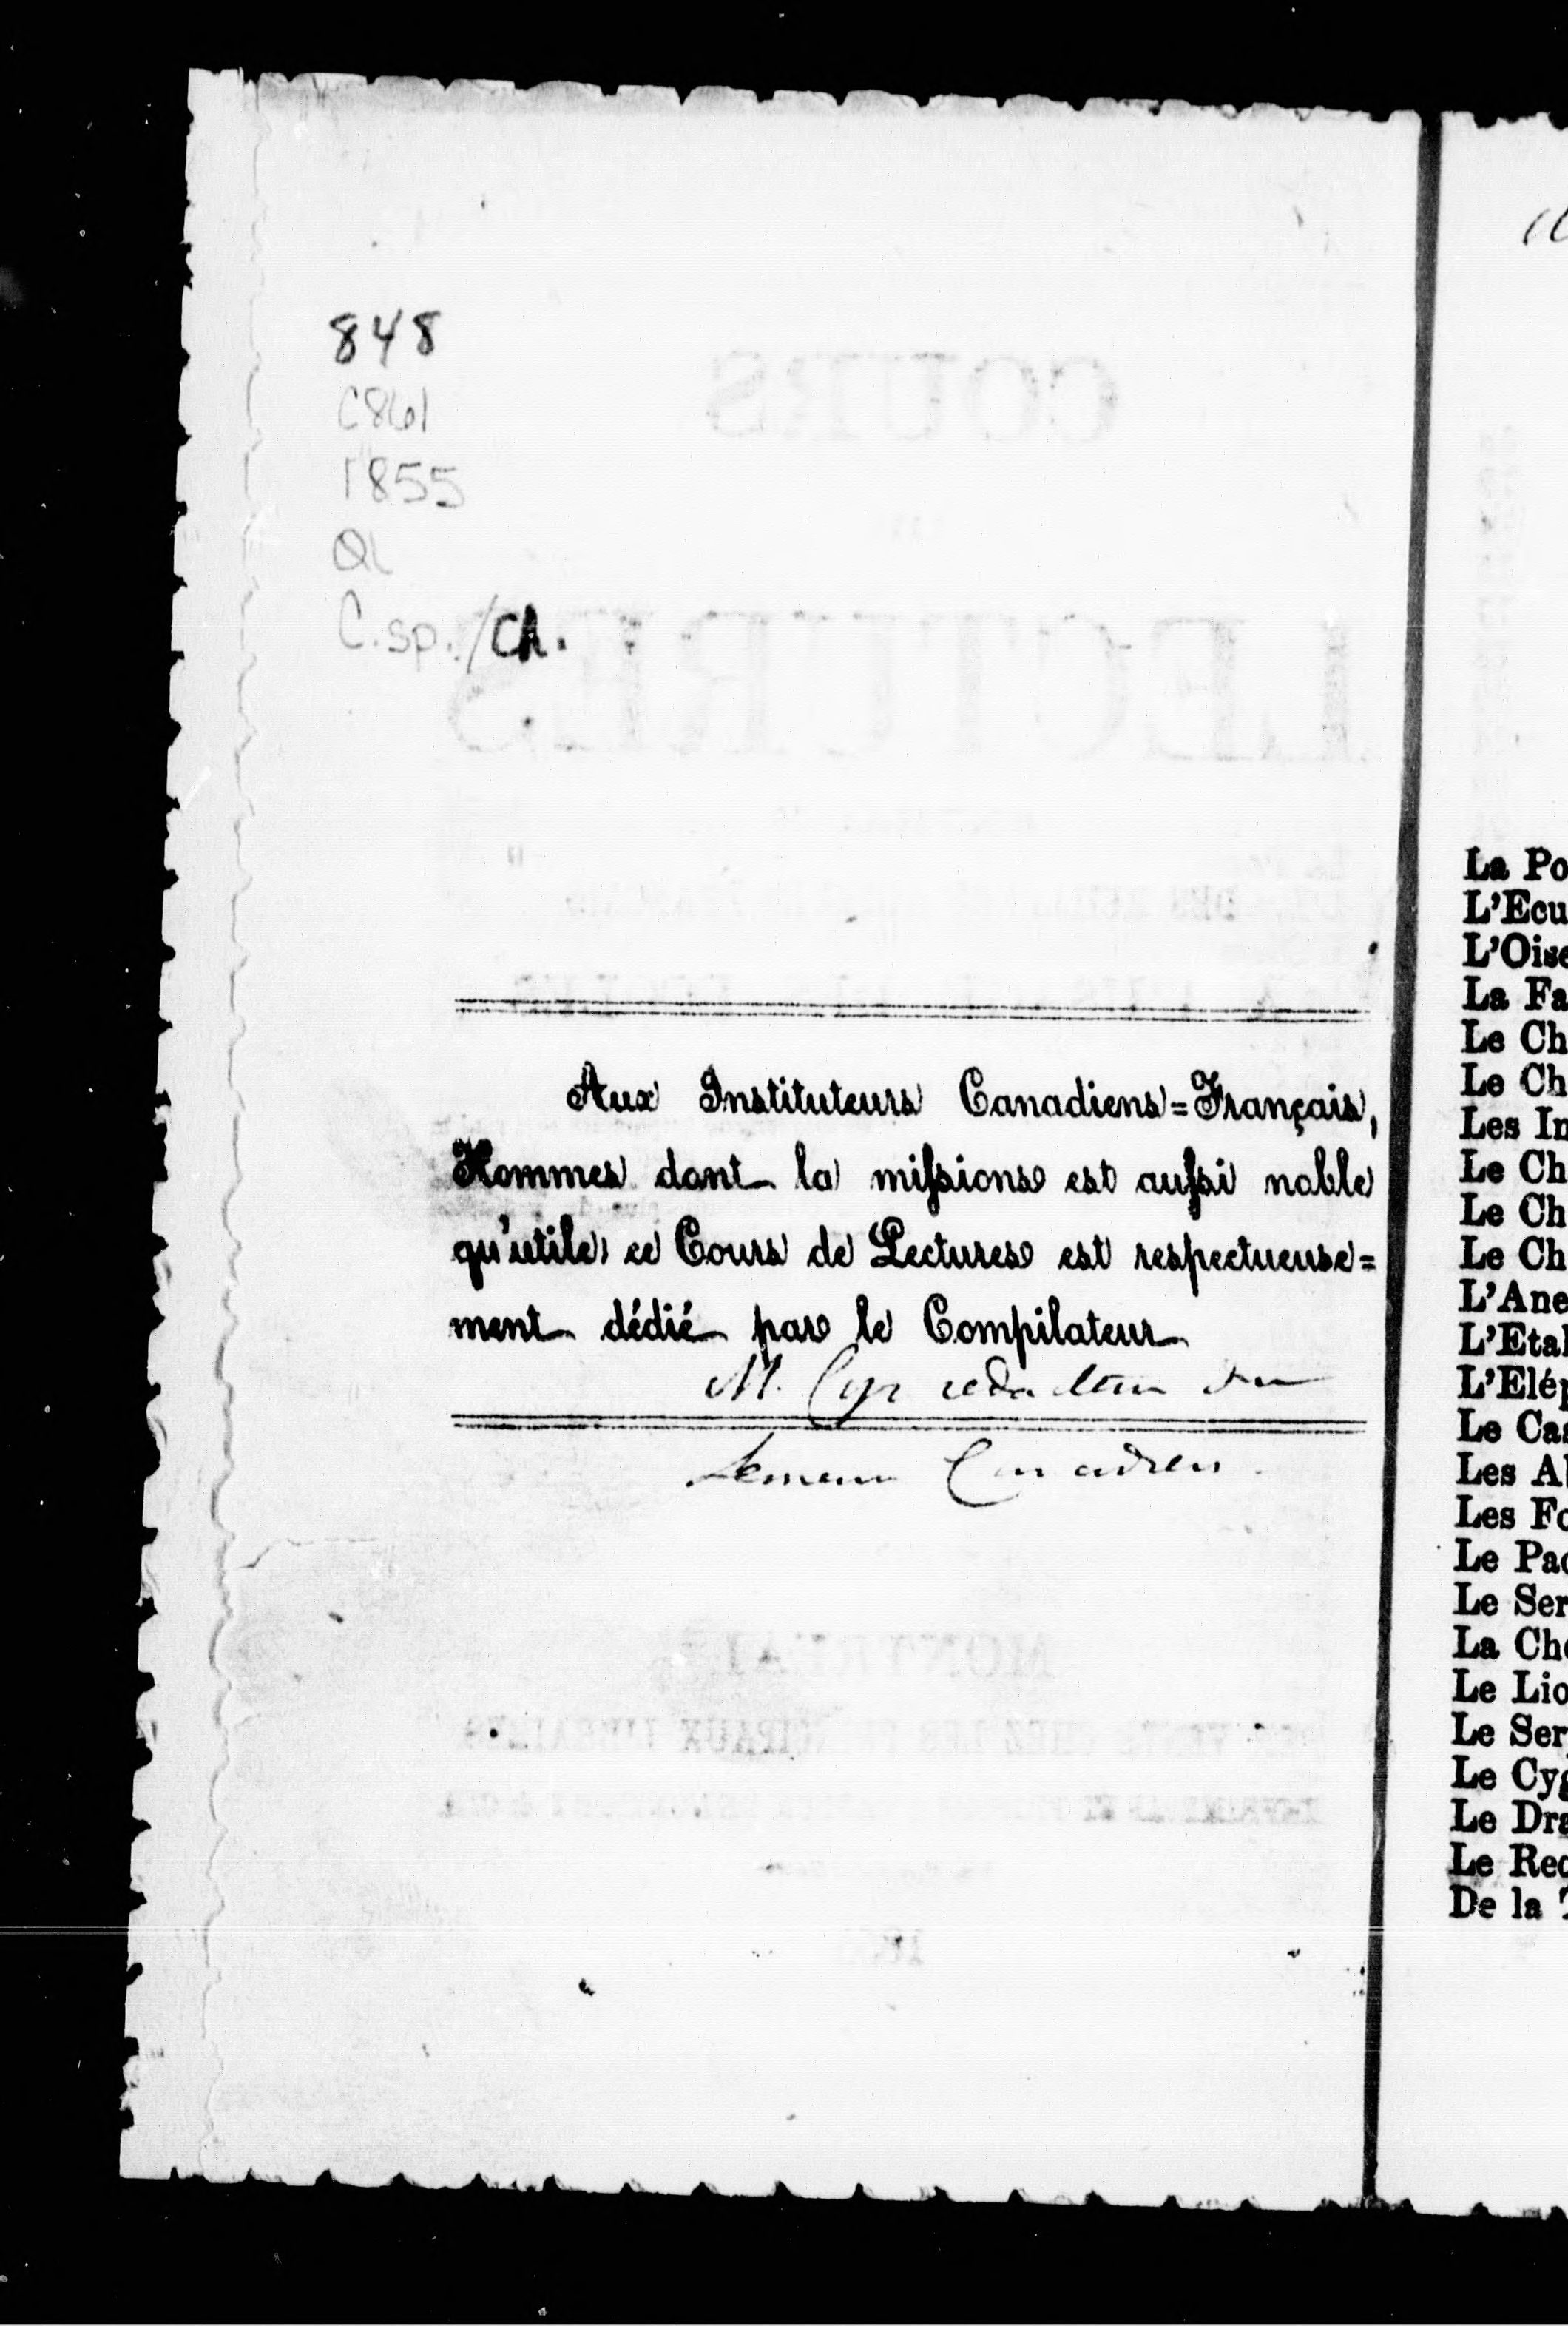 848
C861
1855
QL
C.sp./Ch.
Aux Instituteurs Canadiens=Français,
Hommes dont la missions est aussi noble
qu'utile, ce Cours de Lectures est respectueuse=
ment dédié par le Compilateur
M. Cyr redacteur du
Semeur Canadien.
La Po
L'Ecu
L'Oise
La Fa
Le Ch
Le Ch
Les In
Le Ch
Le Ch
Le Ch
L'Ane
L'Etal
L'Elép
Le Cas
Les Al
Les Fo
Le Pac
Le Ser
La Che
Le Lio
Le Ser
Le Cyg
Le Dra
Le Req
De la T